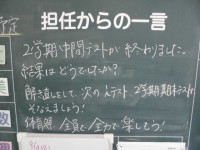 予定
担任からの一言
2学期中間テストが終わりました。
結果はどうでしたか?
解き直しをして次の人テスト、2学期期末テストに
そなえましょう!
体育祭、全員で全力で楽しもう!